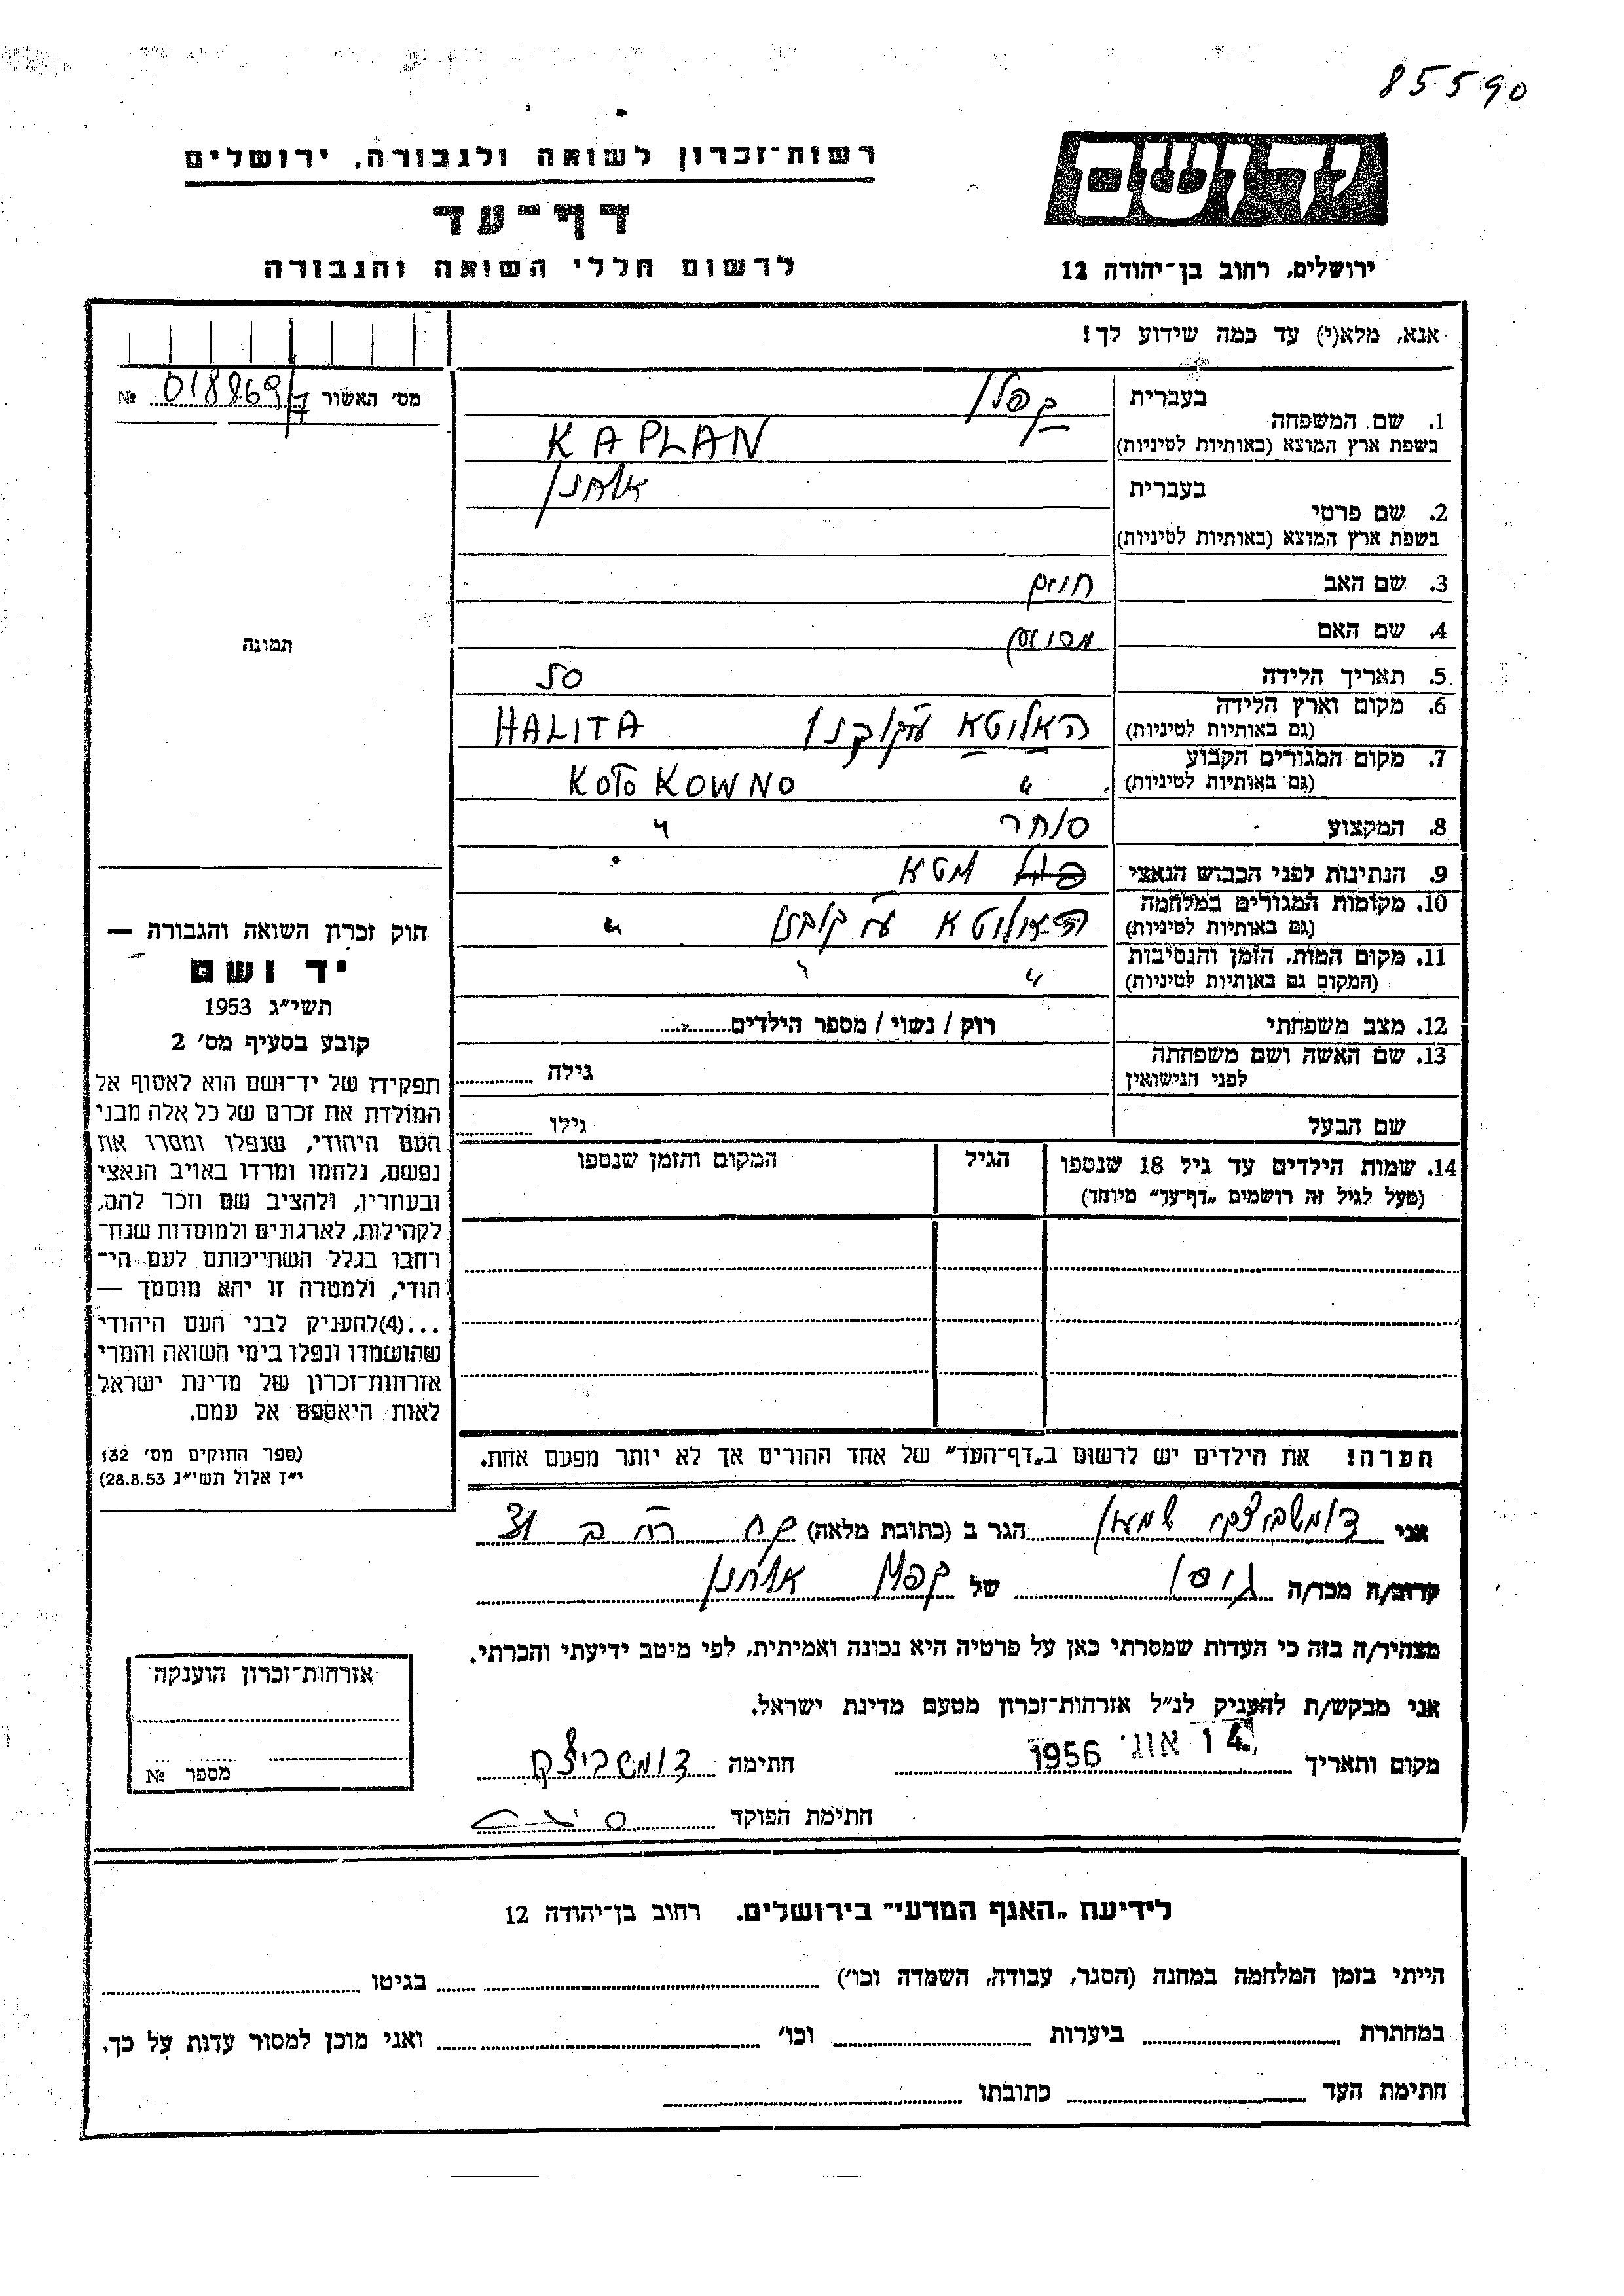 85590
רשות־זכרון לשואה ולגבורה, ירושלים
דף־עד
לרשום חללי השואה והגבורה
יד ושם
ירושלים, רחוב בן־יהודה 12
אנא, מלא(י) עד כמה שידוע לך!
מס׳ האשור № 018869/7
1. שם המשפחה
בעברית קפלן
בשפת ארץ המוצא (באותיות לטיניות) KAPLAN
2. שם פרטי
בעברית אלחנן
בשפת ארץ המוצא (באותיות לטיניות)
3. שם האב חיים
4. שם האם
5. תאריך הלידה 50
6. מקום וארץ הלידה
(גם באותיות לטיניות) האליטא ע״י קובנו HALITA
7. מקום המגורים הקבוע
(גם באותיות לטיניות) " KOŁO KOWNO
8. המקצוע סוחר "
9. הנתינות לפני הכבוש הנאצי ליטא
10. מקומות המגורים במלחמה
(גם באותיות לטיניות) האליטא ע״י קובנו "
11. מקום המות, הזמן והנסיבות
(המקום גם באותיות לטיניות) "
12. מצב משפחתי רוק / נשוי / מספר הילדים
13. שם האשה ושם משפחתה
לפני הנישואין גילה
שם הבעל גילו
14. שמות הילדים עד גיל 18 שנספו הגיל המקום והזמן שנספו
(מעל לגיל זה רושמים „דף־עד״ מיוחד)
הערה! את הילדים יש לרשום ב„דף־העד״ של אחד ההורים אך לא יותר מפעם אחת.
תמונה
חוק זכרון השואה והגבורה —
יד ושם
תשי״ג 1953
קובע בסעיף מס׳ 2
תפקידו של יד־ושם הוא לאסוף אל
המולדת את זכרם של כל אלה מבני
העם היהודי, שנפלו ומסרו את
נפשם, נלחמו ומרדו באויב הנאצי
ובעוזריו, ולהציב שם וזכר להם,
לקהילות, לארגונים ולמוסדות שנח־
רחבו בגלל השתייכותם לעם הי־
הודי, ולמטרה זו יהא מוסמך —
...(4)להעניק לבני העם היהודי
שהושמדו ונפלו בימי השואה והמרי
אזרחות־זכרון של מדינת ישראל
לאות היאספם אל עמם.
(ספר החוקים מס׳ 132
י״ז אלול תשי״ג 28.8.53)
אני דומשביצקי שמעון הגר ב (כתובת מלאה)
קרוב/ה מכר/ה גיסו של קפלן אלחנן
מצהיר/ה בזה כי העדות שמסרתי כאן על פרטיה היא נכונה ואמיתית, לפי מיטב ידיעתי והכרתי.
אני מבקש/ת להעניק לנ״ל אזרחות־זכרון מטעם מדינת ישראל.
מקום ותאריך 14 אוג׳ 1956 חתימה דומשביצקי
חתימת הפוקד
אזרחות־זכרון הוענקה
מספר №
לידיעת „האגף המדעי״ בירושלים, רחוב בן־יהודה 12
הייתי בזמן המלחמה במחנה (הסגר, עבודה, השמדה וכו׳) בגיטו
במחתרת ביערות וכו׳ ואני מוכן למסור עדות על כך.
חתימת העד כתובתו